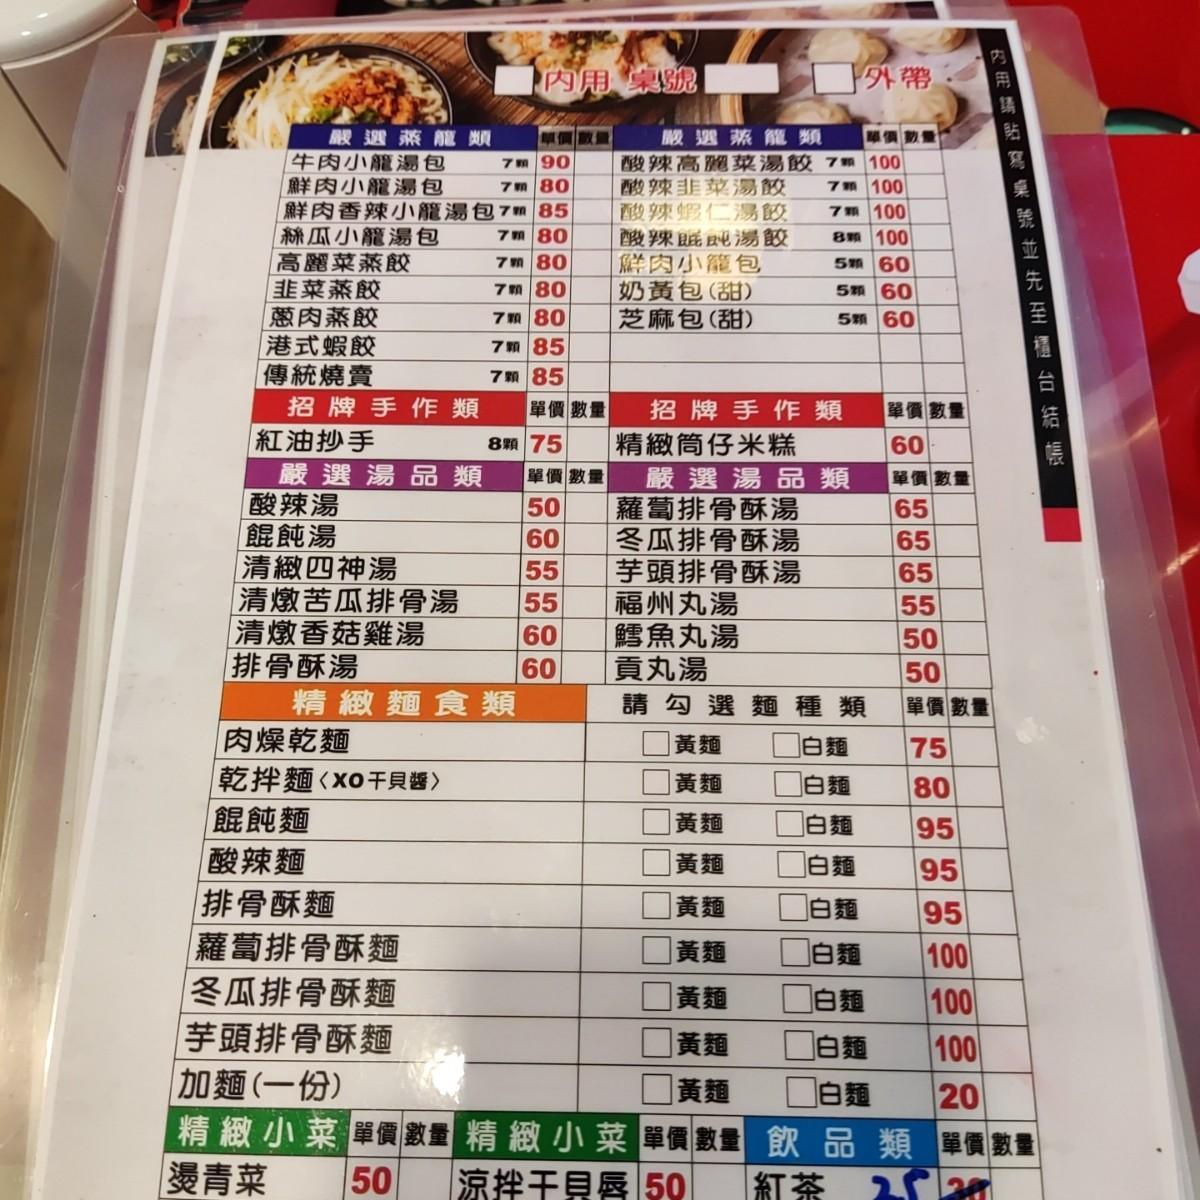 內用 桌號 外帶
內用請貼寫桌號並先至櫃台結帳
嚴選蒸籠類 單價 數量 嚴選蒸籠類 單價 數量
牛肉小籠湯包 7顆 90 酸辣高麗菜湯餃 7顆 100
鮮肉小籠湯包 7顆 80 酸辣韭菜湯餃 7顆 100
鮮肉香辣小籠湯包 7顆 85 酸辣蝦仁湯餃 7顆 100
絲瓜小籠湯包 7顆 80 酸辣餛飩湯餃 8顆 100
高麗菜蒸餃 7顆 80 鮮肉小籠包 5顆 60
韭菜蒸餃 7顆 80 奶黃包(甜) 5顆 60
蔥肉蒸餃 7顆 80 芝麻包(甜) 5顆 60
港式蝦餃 7顆 85
傳統燒賣 7顆 85
招牌手作類 單價 數量 招牌手作類 單價 數量
紅油抄手 8顆 75 精緻筒仔米糕 60
嚴選湯品類 單價 數量 嚴選湯品類 單價 數量
酸辣湯 50 蘿蔔排骨酥湯 65
餛飩湯 60 冬瓜排骨酥湯 65
清緻四神湯 55 芋頭排骨酥湯 65
清燉苦瓜排骨湯 55 福州丸湯 55
清燉香菇雞湯 60 鱈魚丸湯 50
排骨酥湯 60 貢丸湯 50
精緻麵食類 請勾選麵種類 單價 數量
肉燥乾麵 黃麵 白麵 75
乾拌麵〈XO干貝醬〉 黃麵 白麵 80
餛飩麵 黃麵 白麵 95
酸辣麵 黃麵 白麵 95
排骨酥麵 黃麵 白麵 95
蘿蔔排骨酥麵 黃麵 白麵 100
冬瓜排骨酥麵 黃麵 白麵 100
芋頭排骨酥麵 黃麵 白麵 100
加麵(一份) 黃麵 白麵 20
精緻小菜 單價 數量 精緻小菜 單價 數量 飲品類 單價 數量
燙青菜 50 涼拌干貝唇 50 紅茶 25